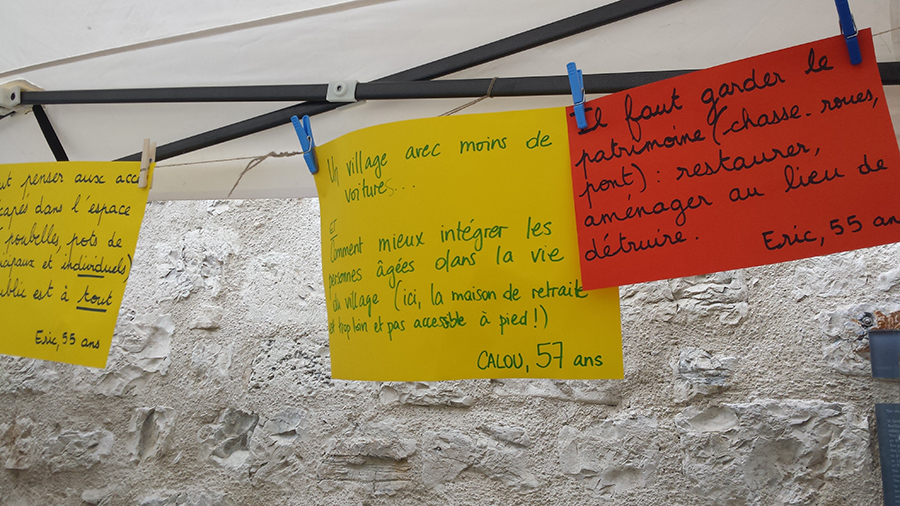 penser aux
dans l'espace
poubelles, pots de
et individuels)
est à tout
Eric, 55 ans
Un village avec moins de
voitures...
ET
Comment mieux intégrer les
personnes âgées dans la vie
du village (ici, la maison de retraite
est trop loin et pas accessible à pied!)
CALOU, 57 ans
Il faut garder le
patrimoine (chasse-roues,
pont) : restaurer,
aménager au lieu de
détruire.
Eric, 55 ans